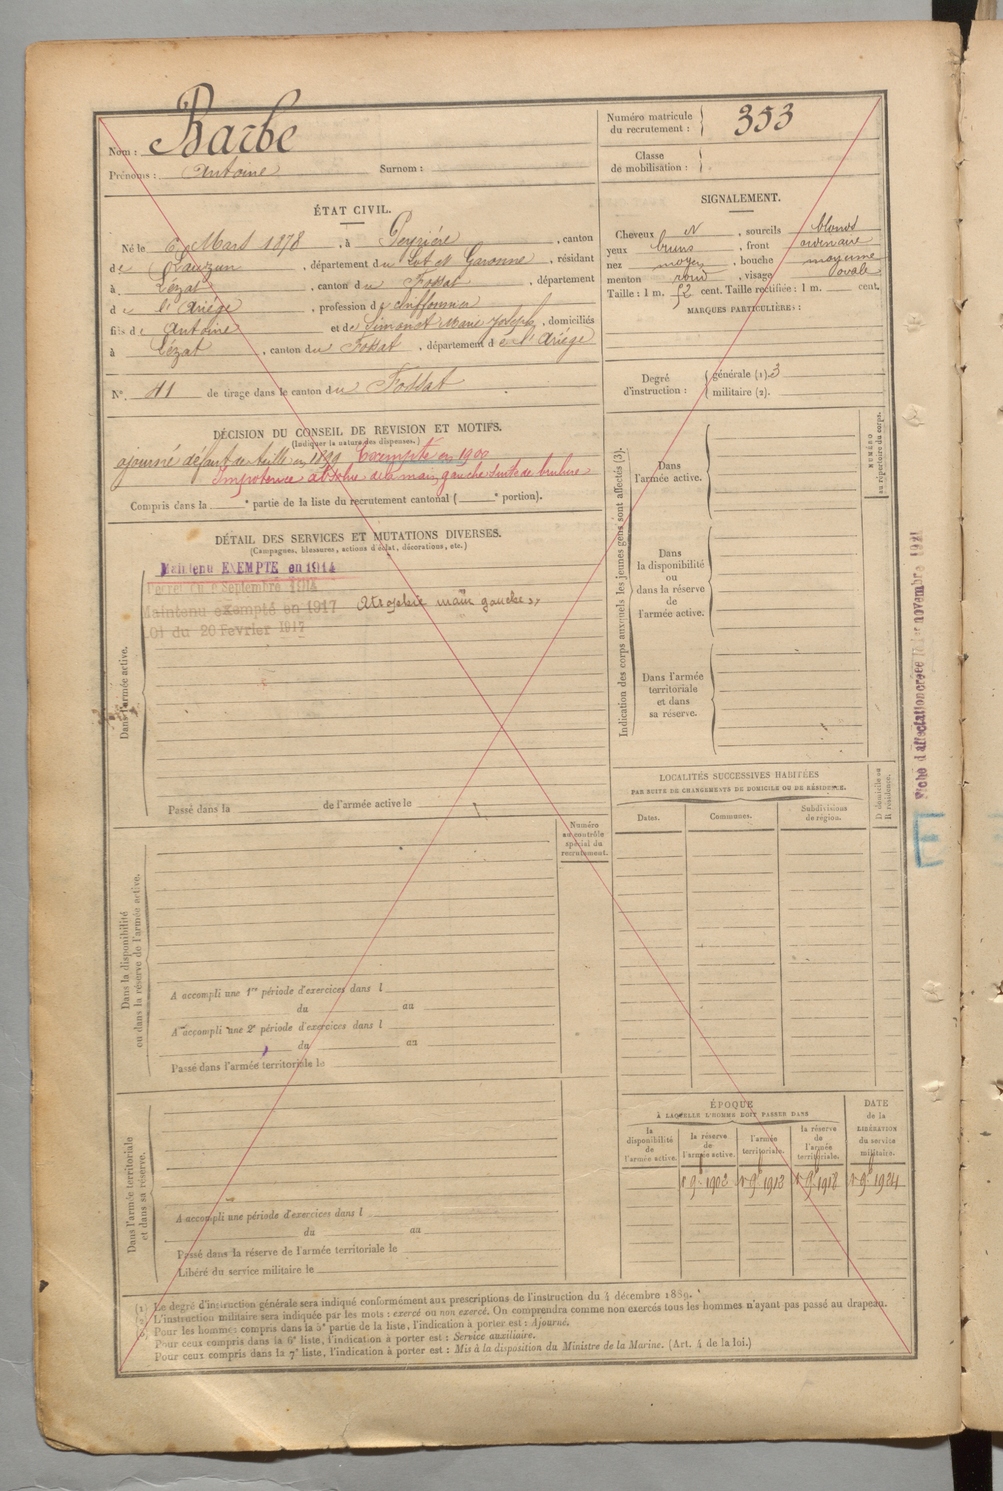 Nom : Barbe
Prénoms : Antoine Surnom :
Numéro matricule
du recrutement : 353
Classe
de mobilisation :
ÉTAT CIVIL.
Né le 6 Mars 1878, à Peyrière, canton
de Lauzun, département du Lot et Garonne, résidant
à Lézat, canton du Fossat, département
de l'Ariége, profession de chiffonnier
fils de Antoine et de Simonet Marie Joseph, domiciliés
à Lézat, canton du Fossat, département de l'Ariége
N° 41 de tirage dans le canton du Fossat
SIGNALEMENT.
Cheveux N, sourcils blonds
yeux bruns, front ordinaire
nez moyen, bouche moyenne
menton rond, visage ovale
Taille : 1 m. 52 cent. Taille rectifiée : 1 m. cent.
MARQUES PARTICULIÈRES :
Degré
d'instruction :
générale (1). 3
militaire (2).
DÉCISION DU CONSEIL DE REVISION ET MOTIFS.
(Indiquer la nature des dispenses.)
ajourné défaut de taille en 1899 Exempté en 1900
Impotence absolue de la main gauche suite de brulure
Compris dans la e partie de la liste du recrutement cantonal ( e portion).
DÉTAIL DES SERVICES ET MUTATIONS DIVERSES.
(Campagnes, blessures, actions d'éclat, décorations, etc.)
Dans l'armée active.
Maintenu EXEMPTE en 1914
Décret du 9 Septembre 1914
Maintenu exempté en 1917 Atrophie main gauche »
Loi du 20 Fevrier 1917
Passé dans la de l'armée active le
Indication des corps auxquels les jeunes gens sont affectés (3).
NUMÉRO
au répertoire du corps.
Dans
l'armée active.
Dans
la disponibilité
ou
dans la réserve
de
l'armée active.
Dans l'armée
territoriale
et dans
sa réserve.
Fiche d'affectation créée le 1er novembre 1921
E
LOCALITÉS SUCCESSIVES HABITÉES
PAR SUITE DE CHANGEMENTS DE DOMICILE OU DE RÉSIDENCE.
Dates.
Communes.
Subdivisions
de région.
D domicile ou
R résidence.
Dans la disponibilité
ou dans la réserve de l'armée active.
Numéro
au contrôle
spécial du
recrutement.
A accompli une 1re période d'exercices dans l
du au
A accompli une 2e période d'exercices dans l
du au
Passé dans l'armée territoriale le
Dans l'armée territoriale
et dans sa réserve.
A accompli une période d'exercices dans l
du au
Passé dans la réserve de l'armée territoriale le
Libéré du service militaire le
ÉPOQUE
À LAQUELLE L'HOMME DOIT PASSER DANS
la
disponibilité
de
l'armée active.
la réserve
de
l'armée active.
l'armée
territoriale.
la réserve
de
l'armée
territoriale.
DATE
de la
LIBÉRATION
du service
militaire.
1 9bre 1902 1 9bre 1912 1 9bre 1918 1 9bre 1924
(1) Le degré d'instruction générale sera indiqué conformément aux prescriptions de l'instruction du 4 décembre 1889.
(2) L'instruction militaire sera indiquée par les mots : exercé ou non exercé. On comprendra comme non exercés tous les hommes n'ayant pas passé au drapeau.
(3) Pour les hommes compris dans la 5e partie de la liste, l'indication à porter est : Ajourné.
Pour ceux compris dans la 6e liste, l'indication à porter est : Service auxiliaire.
Pour ceux compris dans la 7e liste, l'indication à porter est : Mis à la disposition du Ministre de la Marine. (Art. 4 de la loi.)